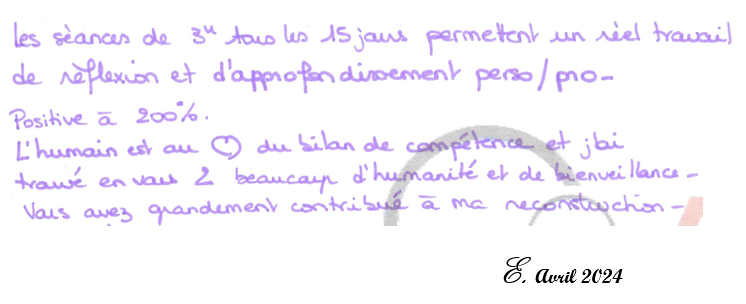 Les séances de 3h tous les 15 jours permettent un réel travail
de réflexion et d'approfondissement perso/pro-
Positive à 200%.
L'humain est au ♡ du bilan de compétence et j'ai
trouvé en vous 2 beaucoup d'humanité et de bienveillance-
Vous avez grandement contribué à ma reconstruction-
E. Avril 2024